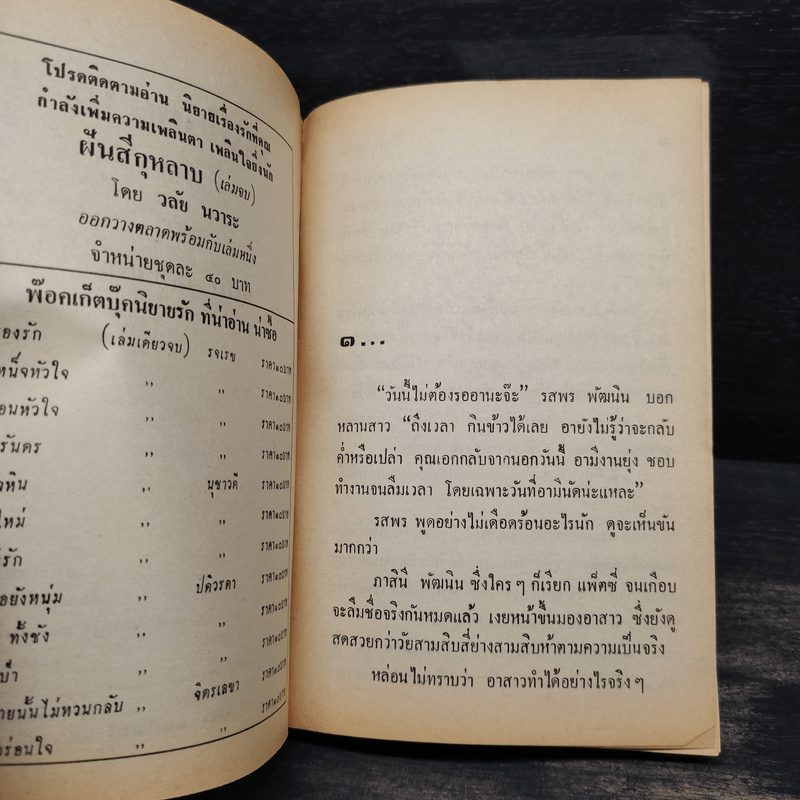 โปรดติดตามอ่าน นิยายเรื่องรักที่คุณ
กำลังเพิ่มความเพลินตา เพลินใจยิ่งนัก
ฝันสีกุหลาบ (เล่มจบ)
โดย วลัย นวาระ
ออกวางตลาดพร้อมกับเล่มหนึ่ง
จำหน่ายชุดละ ๔๐ บาท
พ๊อคเก็ตบุ๊คนิยายรัก ที่น่าอ่าน น่าซื้อ
(เล่มเดียวจบ) รจเรข ราคา๑๐บาท
หัวใจ ,, ,, ราคา๑๐บาท
หัวใจ ,, ,, ราคา๑๐บาท
,, ,, ราคา๑๐บาท
,, นุชาวดี ราคา๑๐บาท
,, ,, ราคา๑๐บาท
รัก ,, ,, ราคา๑๐บาท
ยังหนุ่ม ,, ปติวรดา ราคา๑๐บาท
ทั้งชัง ,, ,, ราคา๑๐บาท
,, ,, ราคา๑๐บาท
นั้นไม่หวนกลับ ,, จิตรเลขา ราคา๑๐บาท
ร่อนใจ ,, ,, ราคา๑๐บาท
๑...
“วันนี้ไม่ต้องรออานะจ๊ะ” รสพร พัฒนิน บอก
หลานสาว “ถึงเวลา กินข้าวได้เลย อายังไม่รู้ว่าจะกลับ
ค่ำหรือเปล่า คุณเอกกลับจากนอกวันนี้ อามีงานยุ่ง ชอบ
ทำงานจนลืมเวลา โดยเฉพาะวันที่อามีนัดน่ะแหละ”
รสพร พูดอย่างไม่เดือดร้อนอะไรนัก ดูจะเห็นขัน
มากกว่า
ภาสินี พัฒนิน ซึ่งใคร ๆ ก็เรียก แพ็ตซี่ จนเกือบ
จะลืมชื่อจริงกันหมดแล้ว เงยหน้าขึ้นมองอาสาว ซึ่งยังดู
สดสวยกว่าวัยสามสิบสี่ย่างสามสิบห้าตามความเป็นจริง
หล่อนไม่ทราบว่า อาสาวทำได้อย่างไรจริง ๆ